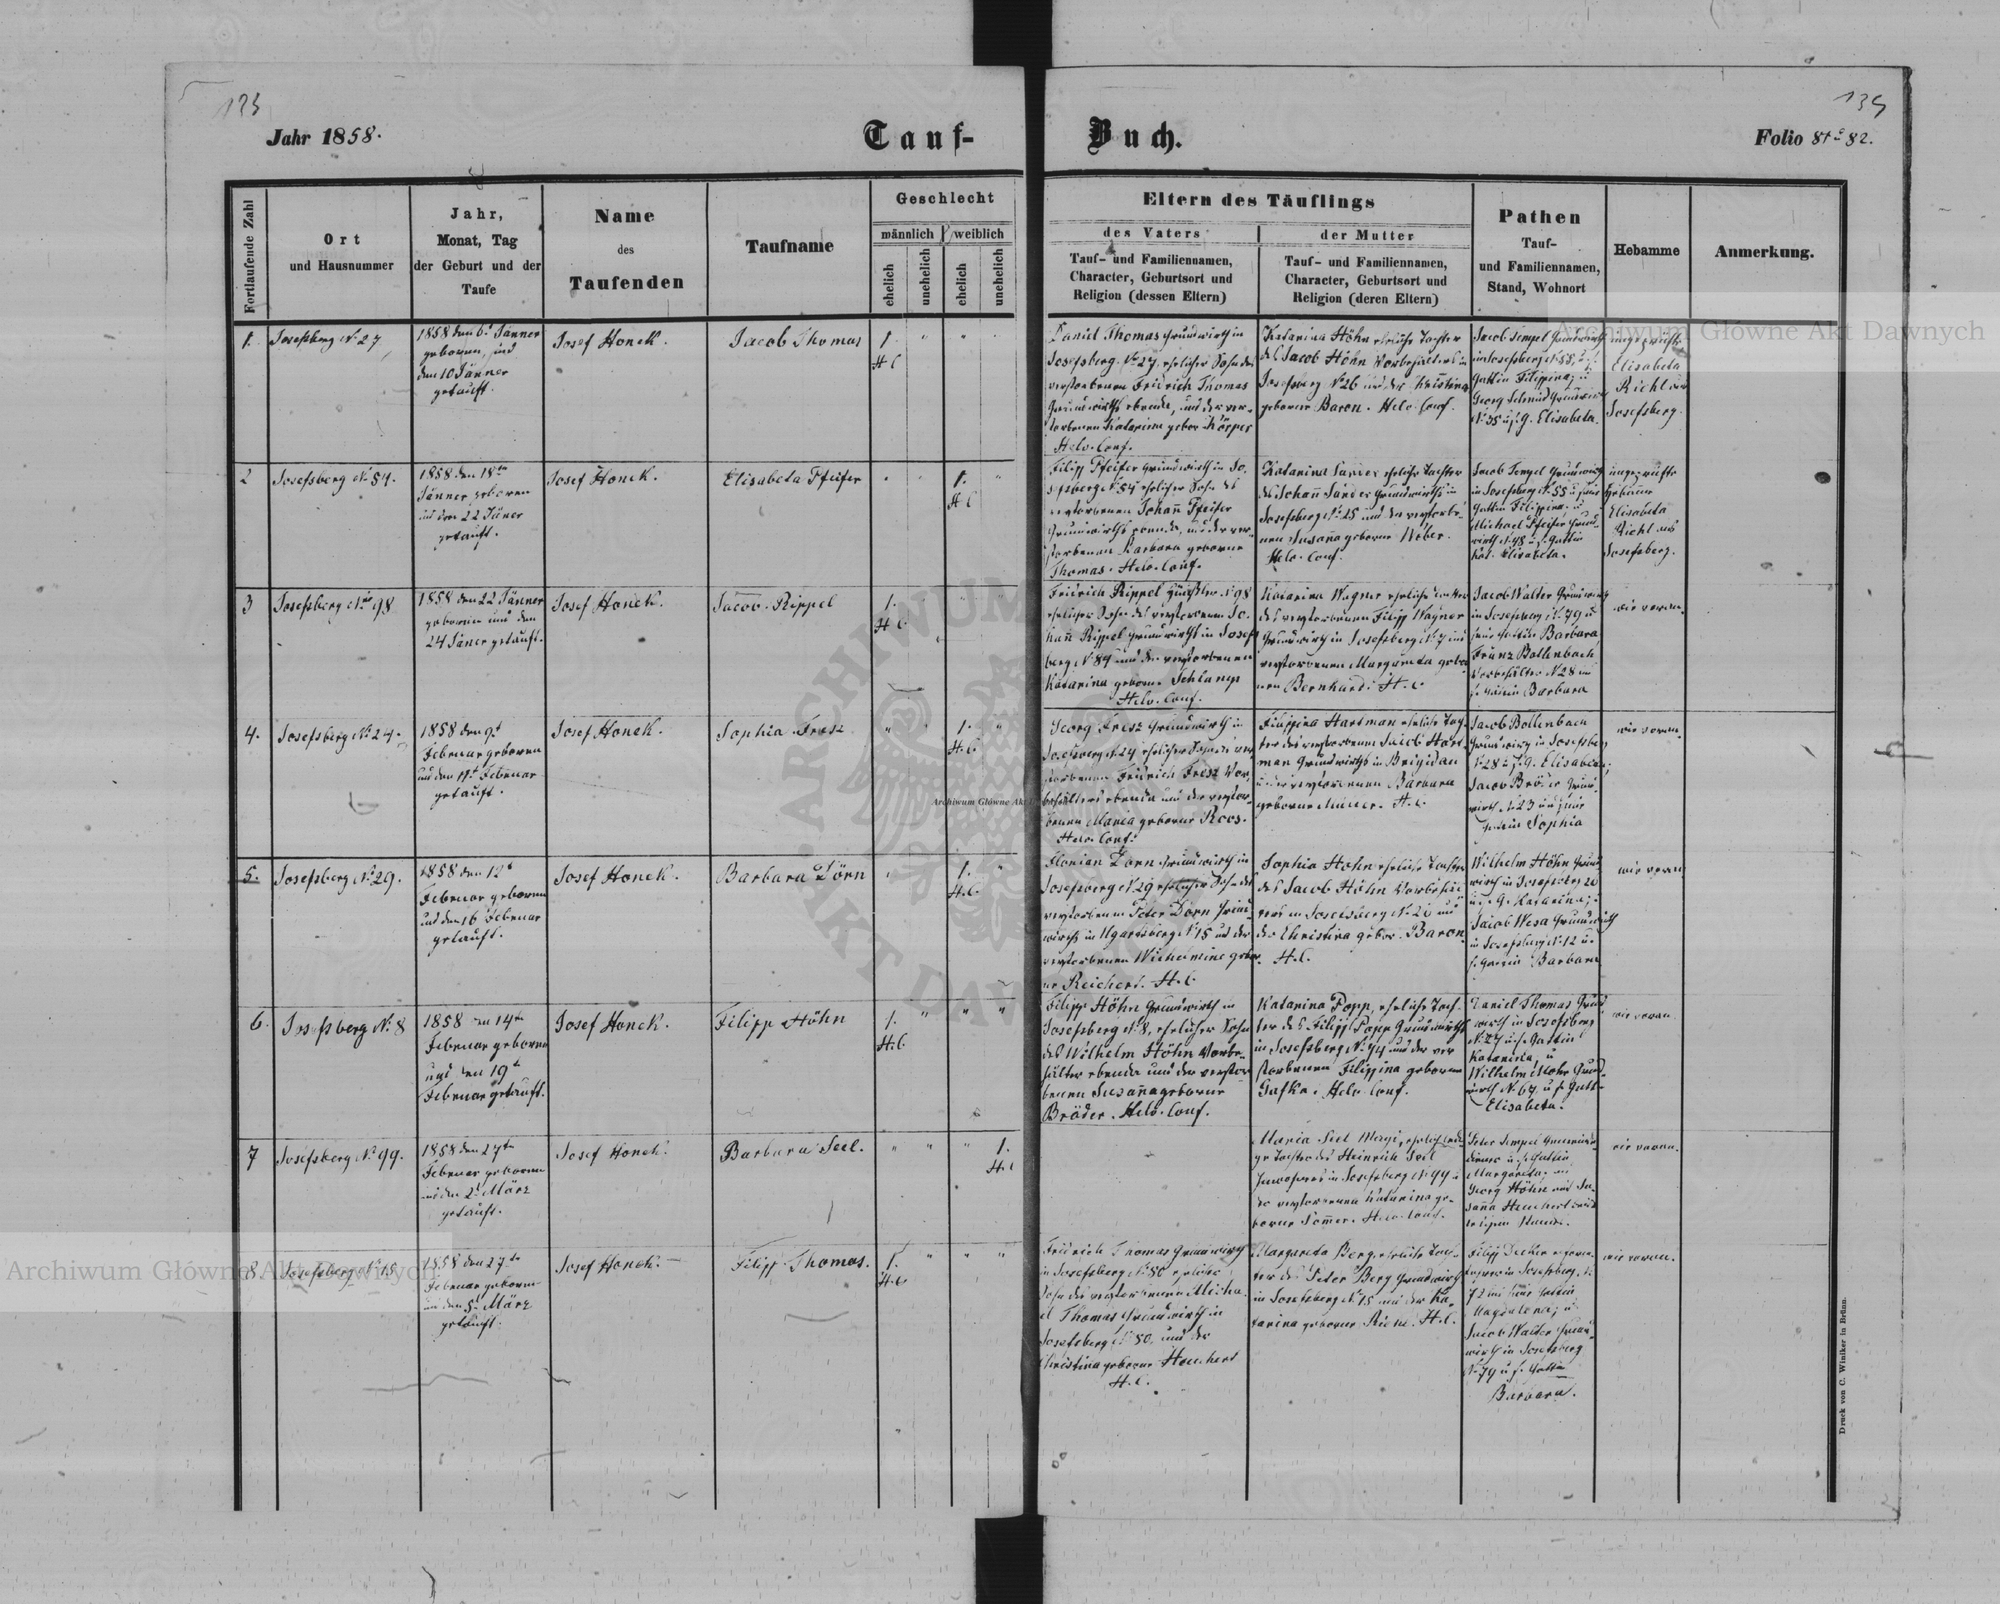 135
Jahr 1858.
Tauf-
Buch.
Folio 81 & 82.
Fortlaufende Zahl
Ort
und Hausnummer
Jahr,
Monat, Tag
der Geburt und der
Taufe
Name
des
Taufenden
Taufname
Geschlecht
männlich
weiblich
ehelich
unehelich
ehelich
unehelich
Eltern des Täuflings
des Vaters
Tauf- und Familiennamen,
Character, Geburtsort und
Religion (dessen Eltern)
der Mutter
Tauf- und Familiennamen,
Character, Geburtsort und
Religion (deren Eltern)
Pathen
Tauf-
und Familiennamen,
Stand, Wohnort
Hebamme
Anmerkung.
1.
Josefsberg No 27
1858 den 6t Jänner
geboren, und
den 10 Jänner
getauft.
Josef Honek.
Jacob Thomas
1.
H.C
Daniel Thomas Grundwirth in
Josefsberg No 27, ehelicher Sohn des
verstorbenen Fridrich Thomas
Grundwirths ebenda, und der ver-
storbenen Katarina gebor. Körper
Helv. Conf.
Katarina Höhn eheliche Tochter
des Jacob Höhn Vorbehälters in
Josefsberg No 26 und der Kristina
geborne Baron. Helv. Conf.
Jacob Tempel Grundwirth
in Josefsberg No 55, u. s.
Gattin Filippina; u
Georg Schmid Grundwirth
No 35 u. s. G. Elisabeta.
ungeprüfte
Elisabeta
Richl aus
Josefsberg.
2
Josefsberg No 54.
1858 den 18ten
Jänner geboren
und den 22 Jäner
getauft.
Josef Honek.
Elisabeta Pfeifer
1.
H.C
Filipp Pfeifer Grundwirth in Jo-
sefsberg No 54 ehelicher Sohn des
verstorbenen Johan Pfeifer
Grundwirths ebenda, und der ver-
storbenen Barbara geborne
Thomas. Helv. Conf.
Katarina Sander eheliche Tochter
des Johan Sander Grundwirths in
Josefsberg No 25 und der verstorbe-
nen Susana geborne Weber.
Helv. Conf.
Jacob Tempel Grundwirth
in Josefsberg No 55 u. seine
Gattin Filippina; u
Michael Pfeifer Grund-
wirth No 48 u. s. Gattin
Kat. Elisabeta.
ungeprüfte
Hebamme
Elisabeta
Richl aus
Josefsberg.
3
Josefsberg Nro 98
1858 den 22 Jänner
geboren und den
24 Jäner getauft.
Josef Honek.
Jacob Rippel
1.
H.C.
Fridrich Rippel Häusler No 98
ehelicher Sohn des verstorbenen Jo-
han Rippel Grundwirths in Josefs
berg No 84 und der verstorbenen
Katarina geborne Schlamp
Helv. Conf.
Katarina Wagner eheliche Tochter
des verstorbenen Filipp Wagner
Grundwirth in Josefsberg No 7 und
verstorbenen Margareta gebor-
nen Bernhardi H. C.
Jacob Walter Grundwirth
in Josefsberg No 79 u
seine Gattin Barbara,
Franz Bollenbach
Vorbehälter No 28 und
s. Gattin Barbara
wie voran.
4.
Josefsberg No 24.
1858 den 9t
Februar geboren
und den 11t Februar
getauft.
Josef Honek.
Sophia Fresz
1.
H.C.
Georg Fresz Grundwirth in
Josefsberg No 24 ehelicher Sohn des ver-
storbenen Fridrich Fresz Vor-
behälters ebenda und der verstor-
benen Maria geborne Roos.
Helv. Conf.
Filippina Hartman eheliche Toch-
ter des verstorbenen Jacob Hart-
man Grundwirths in Brigidau
und der verstorbenen Barbara
geborne Müller. H. C.
Jacob Bollenbach
Grundwirth in Josefsberg
No 28 u. s. G. Elisabeta;
Jacob Bröder Grund-
wirth No 23 und seine
Gattin Sophia
wie voran.
5.
Josefsberg No 29.
1858 den 12t
Februar geboren
und den 16 Februar
getauft.
Josef Honek.
Barbara Dörn
1.
H.C.
Florian Dorn Grundwirth in
Josefsberg No 29 ehelicher Sohn des
verstorbenen Peter Dorn Grund-
wirths in Ugartsberg No 15 und der
verstorbenen Wilhelmine gebor-
ne Reichert. H. C
Sophia Höhn eheliche Tochter
des Jacob Höhn Vorbehäl-
ters in Josefsberg No 26 und
der Christina gebor. Baron.
H. C.
Wilhelm Höhn Grund-
wirth in Josefsberg 20
u. s. G. Katarina;
Jacob Wesa Grundwirth
in Josefsberg No 12 u.
s. Gattin Barbara
wie voran
6.
Josefsberg No 8
1858 den 14ten
Februar geboren
und den 19t
Februar getauft.
Josef Honek.
Filipp Höhn
1.
H.C.
Filipp Höhn Grundwirth in
Josefsberg No 8, ehelicher Sohn
des Wilhelm Höhn Vorbe-
hälter ebenda und der verstor-
benen Susana geborne
Bröder. Helv. Conf.
Katarina Popp, eheliche Toch-
ter des Filipp Popp Grundwirths
in Josefsberg No 74 und der ver
storbenen Filippina geborne
Gafka. Helv. Conf.
Daniel Thomas Grund-
wirth in Josefsberg
No 27 u. s. Gattin
Katarina, u
Wilhelm Mohr Grund-
wirth No 67 u. s. Gatt-
Elisabeta.
wie voran
7
Josefsberg No 99.
1858 den 27ten
Februar geboren
und den 2t März
getauft.
Josef Honek.
Barbara Seel.
1.
H.C
Maria Seel
Tochter des Heinrich Seel
in Josefsberg No 99 u
der verstorbenen Katarina ge-
borne Sommer. Helv. Conf.
Peter Tempel
u. s. Gattin
Margareta; und
Georg Höhn und Su-
sana Heuchert beide
ledigen Standes.
wie voran.
8.
Josefsberg No 15
1858 den 27ten
Februar geboren
und den 5t März
getauft.
Josef Honek.
Filipp Thomas.
1.
H.C.
Fridrich Thomas Grundwirth
in Josefsberg No 50 ehelicher
Sohn des verstorbenen Micha-
el Thomas Grundwirth in
Josefsberg No 50, und der
Christina geborne Heuchert
H. C.
Margareta Berg, eheliche Toch-
ter des Peter Berg Grundwirth
in Josefsberg No 15 und der Ka-
tarina geborne Riehl. H. C.
Filipp Decker
in Josefsberg No
72 und seine Gattin
Magdalena; u
Jacob Walter Grund-
wirth in Josefsberg
No 79 u. s. Gattin
Barbara.
wie voran.
Druck von C. Winiker in Brünn.
Archiwum Główne Akt Dawnych
Archiwum Główne Akt Dawnych
ARCHIWUM
AKT DAW